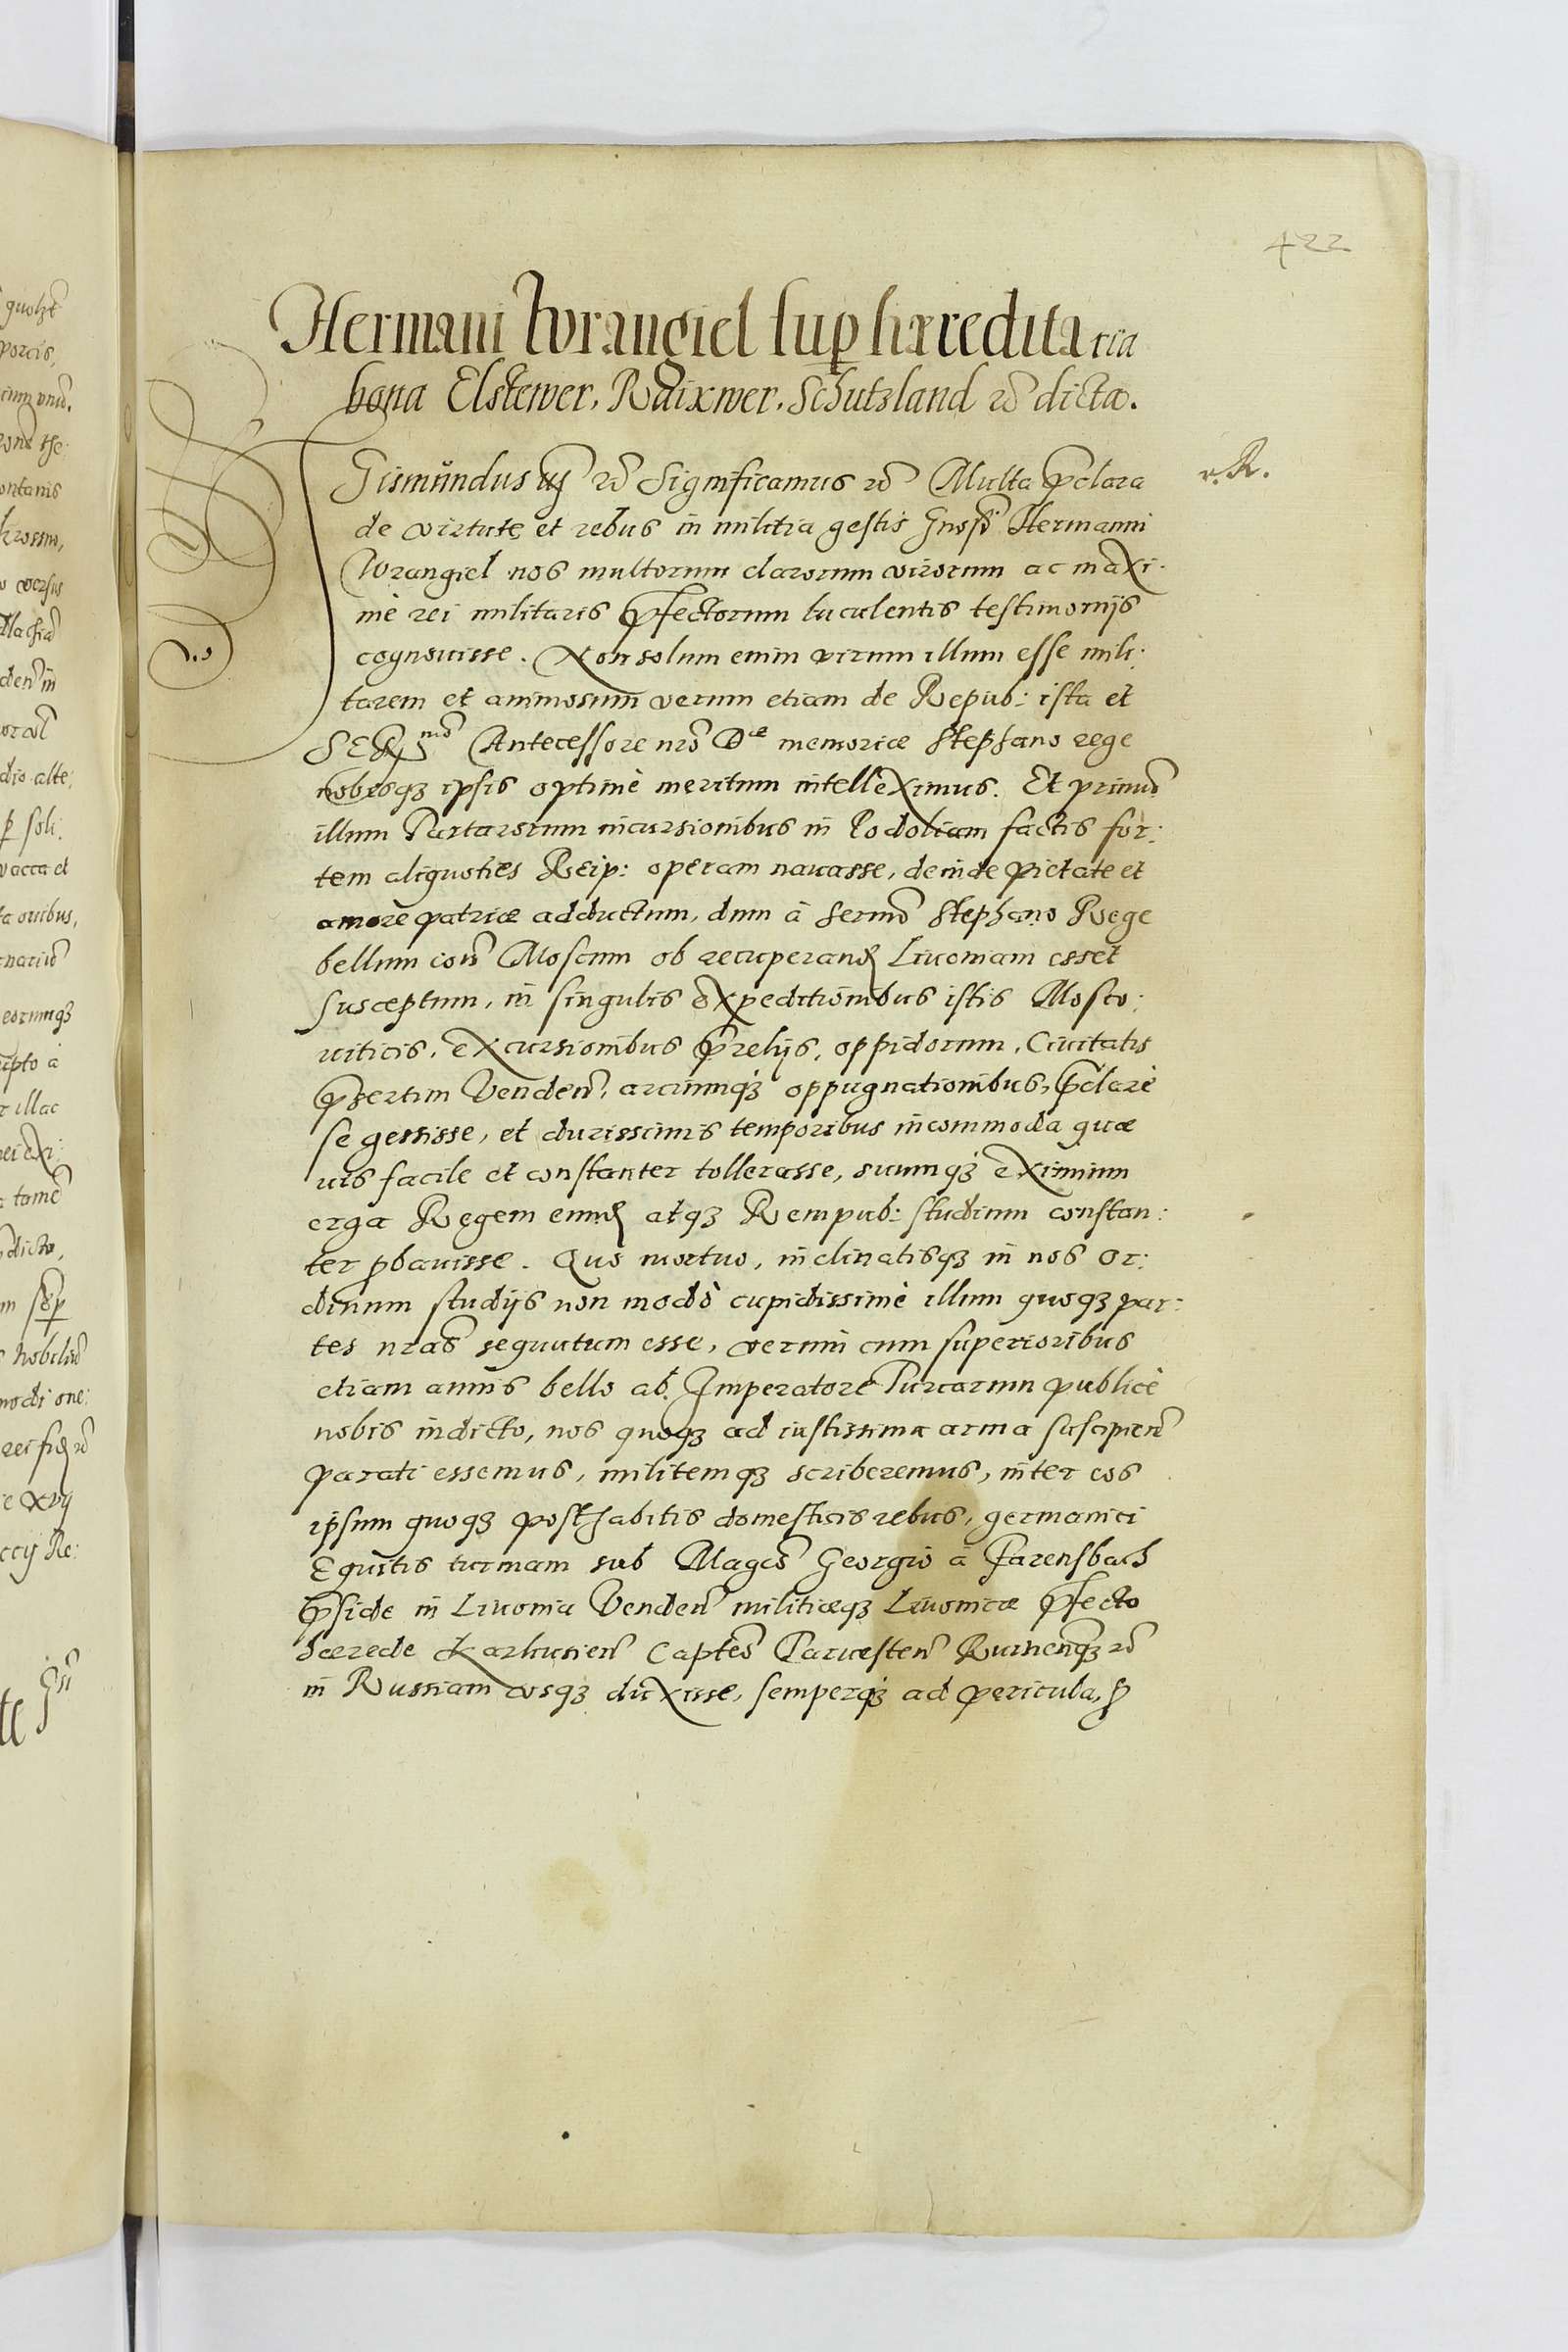 422
Hermani Wrangiel sup hæreditaria
bona Elstewer, Raixwer, Schutzland &c dicta.
Gismundus iij &c Significamus &c Multa pclara
r. R.
de virtute et rebus in militia gestis Gnosi Hermanni
Wrangiel nos multorum clarorum virorum ac maxi:
mè rei militaris pfectorum luculentis testimonijs
cognovisse. Non solum enim virum illum esse mili:
tarem et animosum verum etiam de Repub: ista et
Antecessore nrõ Dæ memoriæ Stephano rege
nobisqꝫ ipsis optimè meritum intelleximus. Et primũ
illum Tartarorum incursionibus in Podoliam factis for:
tem aliquoties Reip: operam navasse, deinde pietate et
amore patriæ adductum, dum à Sermõ Stephano Rege
bellum con Moscum ob recuperand Livoniam esset
susceptum, in singulis expeditionibus istis Mosco:
viticis, excursionibus prelijs, oppidorum, Civitatis
psertim Venden, arciumqꝫ oppugnationibus, pclarè
se gessisse, et durissimis temporibus incommoda quæ
vis facile et constanter tollerasse, suumqꝫ eximium
erga Regem eund atqꝫ Rempub: studium constan:
ter pbavisse. Quo mortuo, inclinatisqꝫ in nos Or:
dinum studijs non modò cupidissimè illum quoqꝫ par:
tes nras sequutum esse, verum cum superioribus
etiam annis bello ab Imperatore Turcarum publicè
nobis indicto, nos quoqꝫ ad iustissima arma suscipien
parati essemus, militemqꝫ scriberemus, inter eos
ipsum quoqꝫ posthabitis domesticis rebus, germanici
Equitis turmam sub Magco Georgio à Farensbach
pside in Livonia Venden militiæqꝫ Livonicæ pfecto
hærede Karkusien Captẽo Tarvesten Ruinenqꝫ &c
in Russiam usqꝫ duxisse, semperqꝫ ad pericula, p